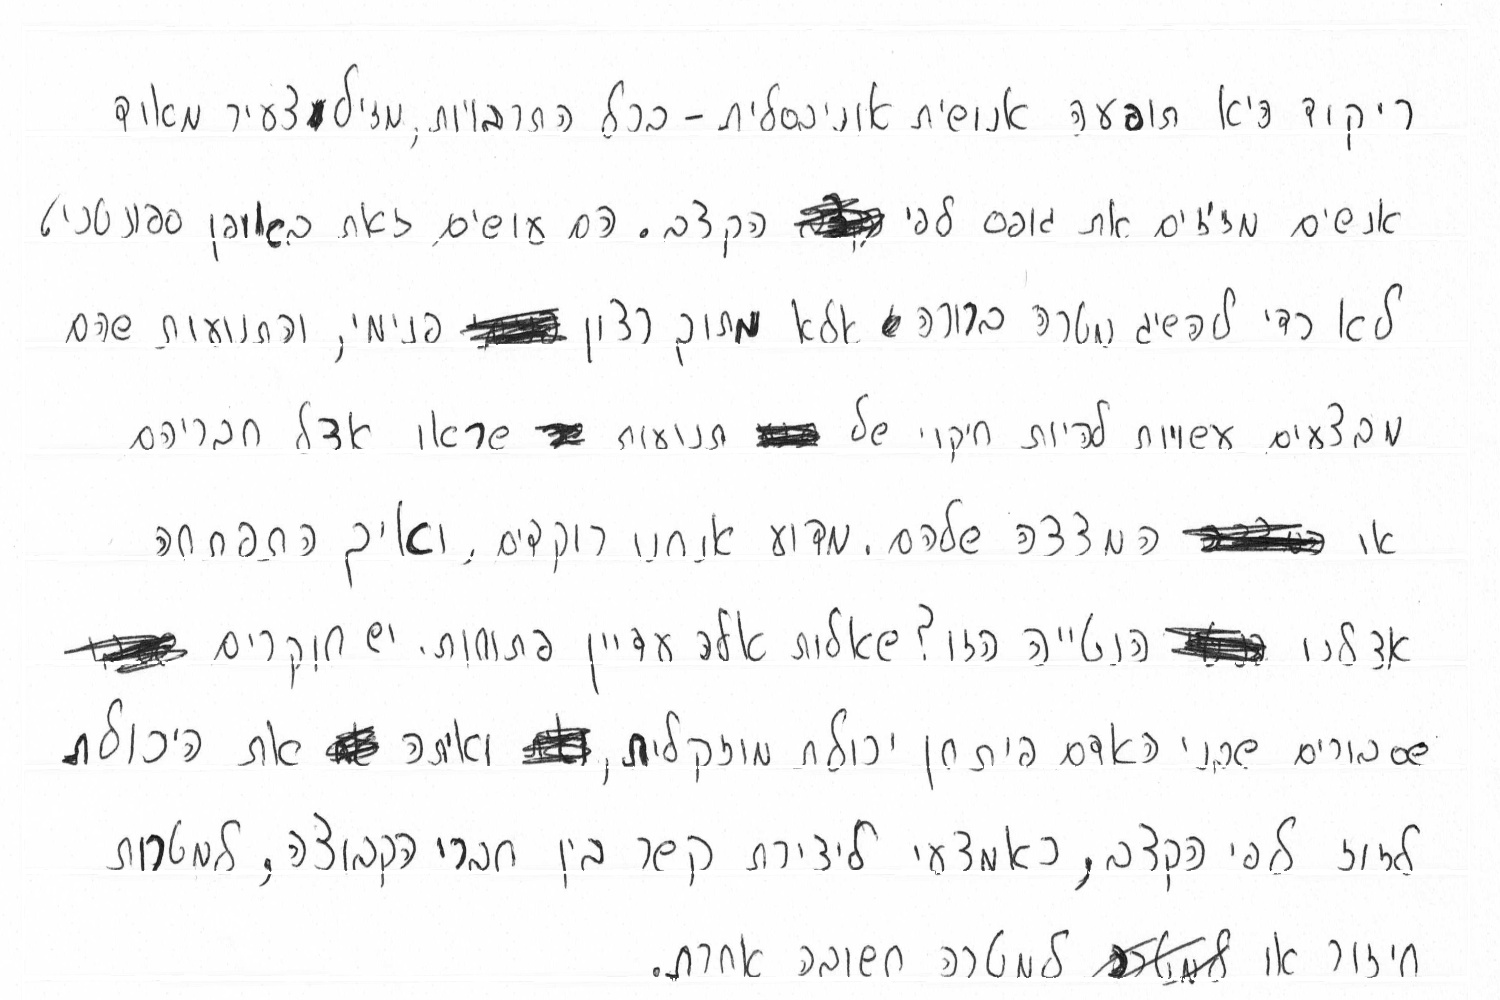 ריקוד היא תופעה אנושית אוניברסלית - בכל התרבויות, מגיל צעיר מאוד
אנשים מזיזים את גופם לפי הקצב. הם עושים זאת באופן ספונטני,
לא כדי להשיג מטרה ברורה אלא מתוך רצון פנימי, והתנועות שהם
מבצעים עשויות להיות חיקוי של תנועות שראו אצל חבריהם
או המצאה שלהם. מדוע אנחנו רוקדים, ואיך התפתחה
אצלנו הנטייה הזו? שאלות אלה עדיין פתוחות. יש חוקרים
שסבורים שבני האדם פיתחו יכולת מוזיקלית, ואיתה את היכולת
לזוז לפי הקצב, כאמצעי ליצירת קשר בין חברי הקבוצה, למטרות
חיזור או למטרה חשובה אחרת.